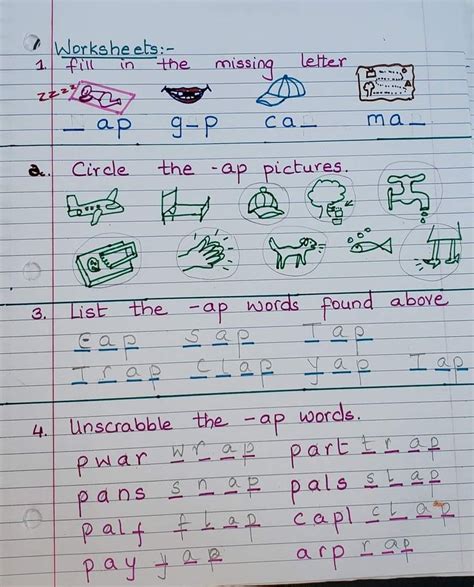 Worksheets:-
1. fill in the missing letter
zzzz
_ ap g-p ca_ ma_
2. Circle the -ap pictures.
3. List the -ap words found above
cap sap Tap
Trap clap yap Tap
4. Unscrabble the -ap words.
pwar wrap part trap
pans snap pals slap
palf flap capl clap
pay yap arp rap